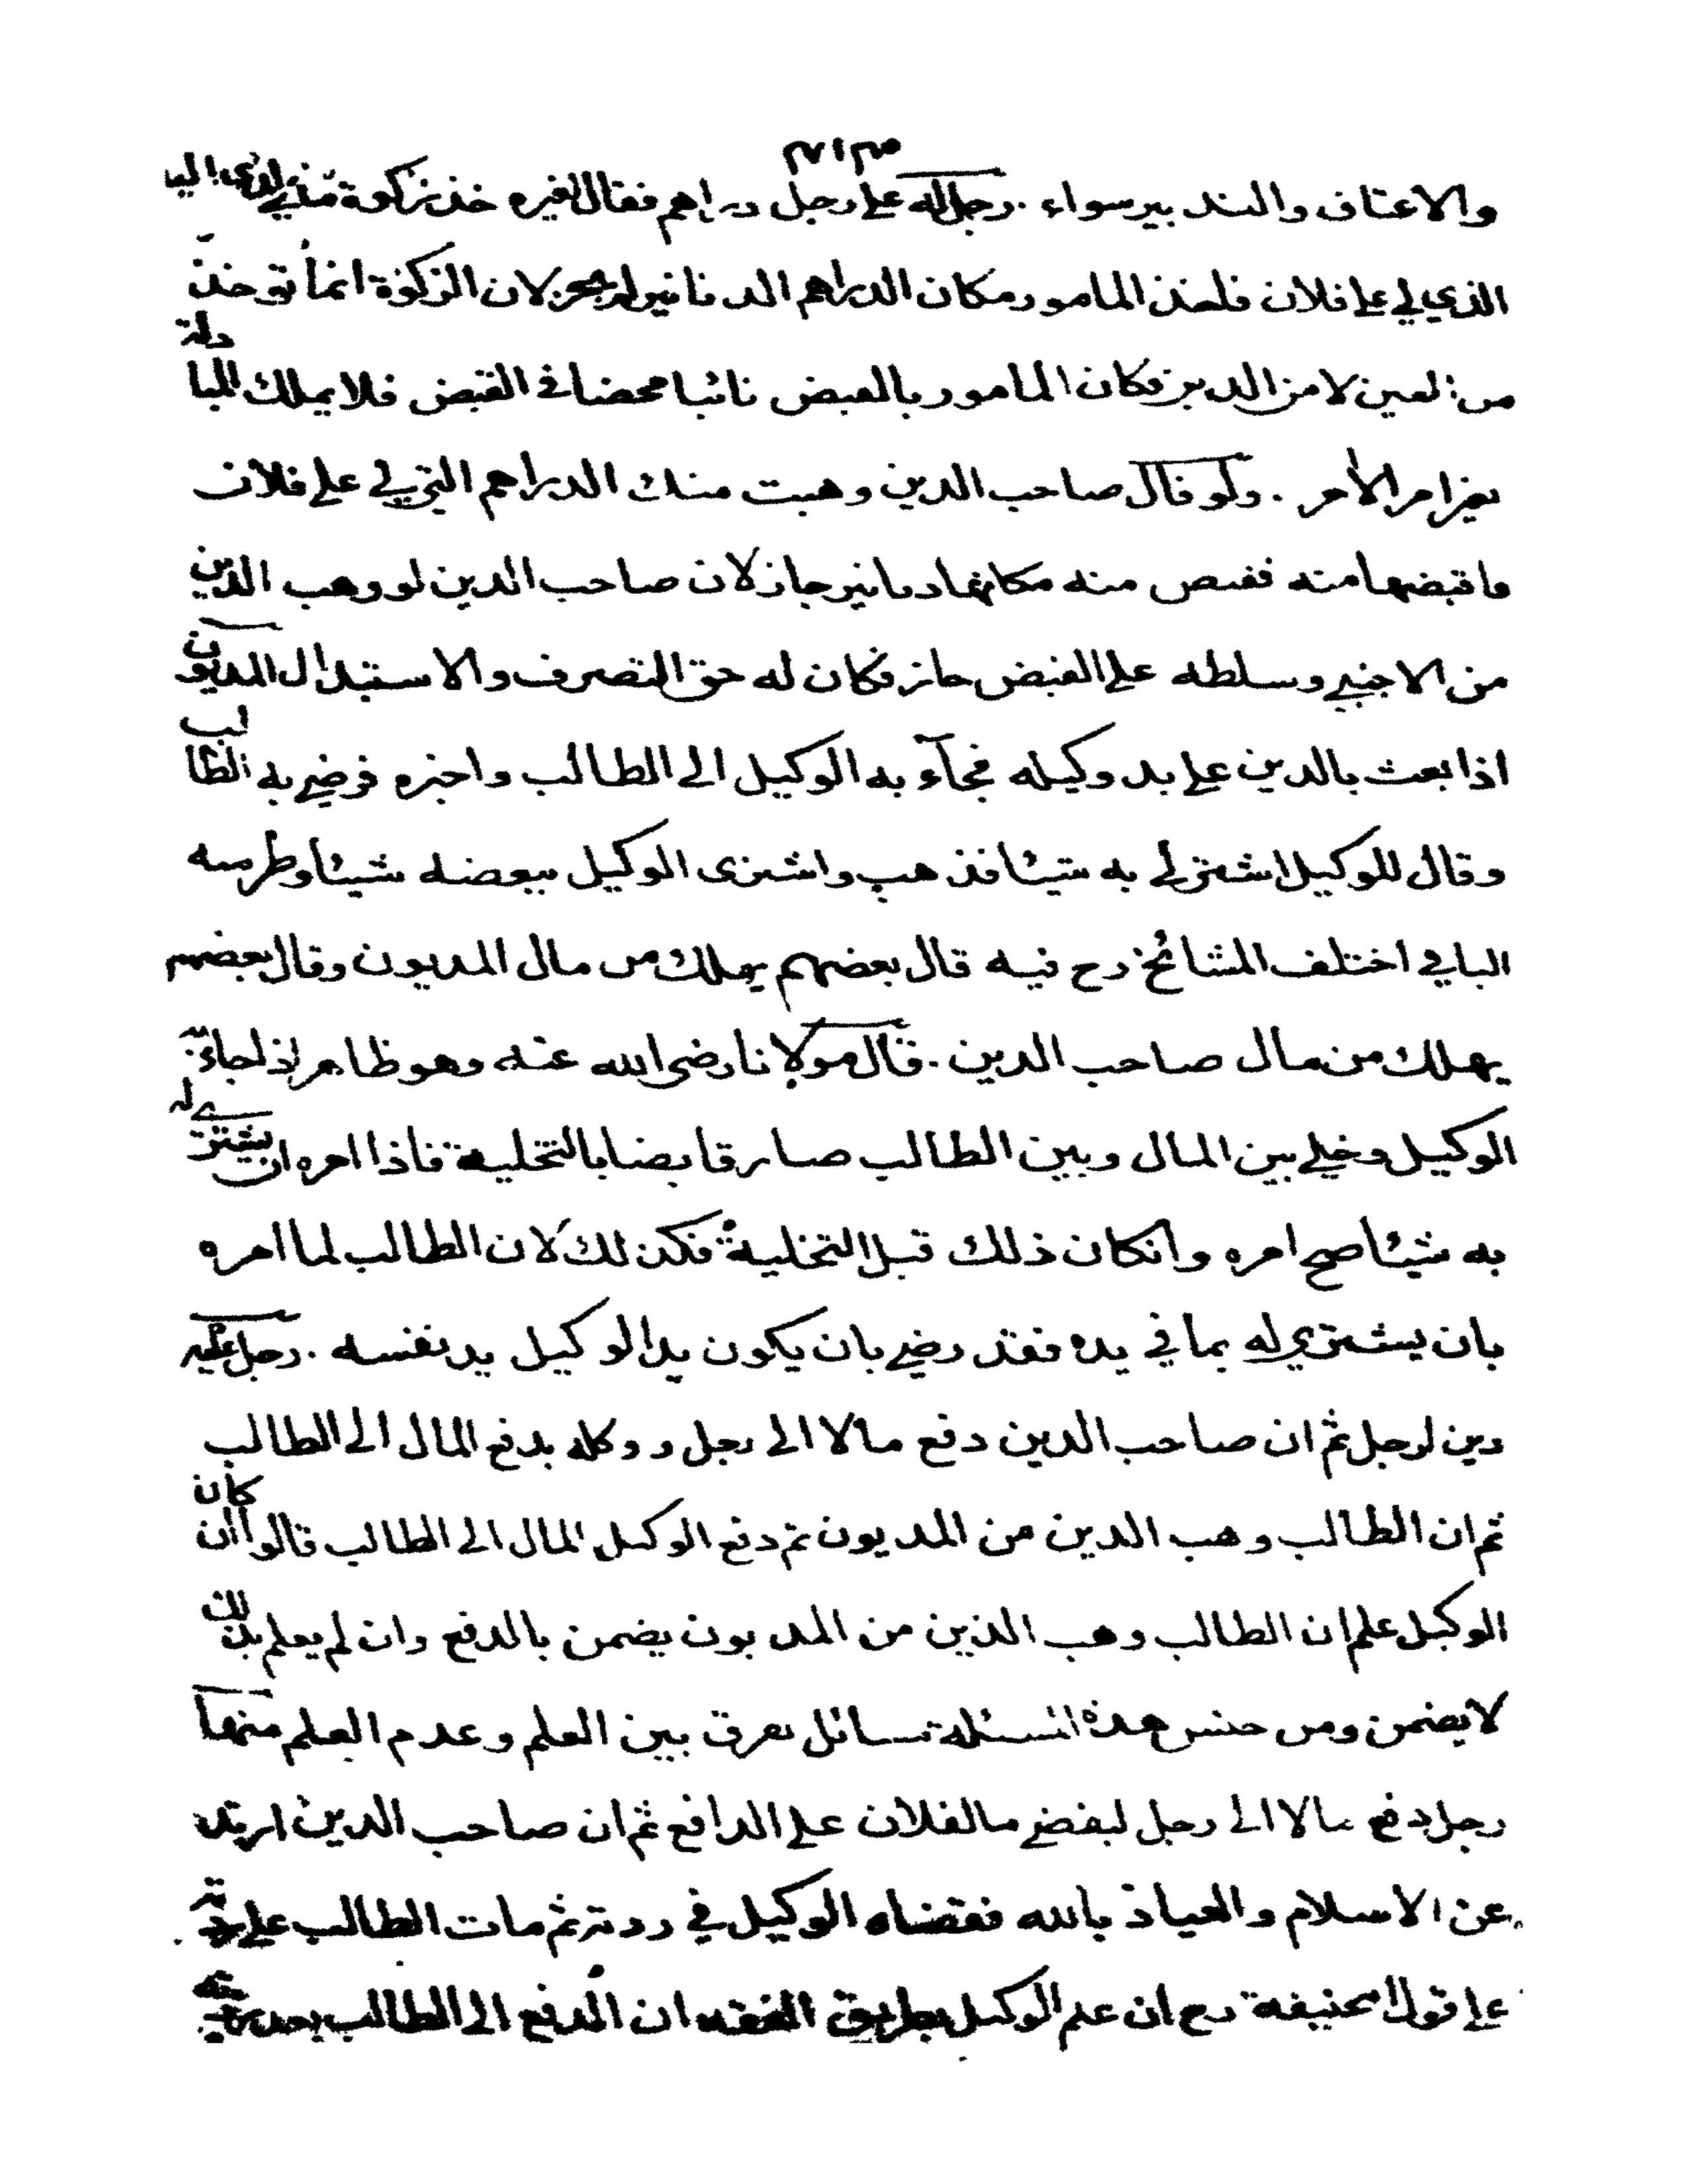 والاعتاق والتدبير سواء . رجل له على رجل دراهم فقال لغيره خذ زكوة مالي
الذي لي على فلان فاخذ المامور مكان الدراهم الدنانير لم يجز لان الزكوة انما توخذ
من العين لا من الدين فكان المامور بالقبض نائبا محضا في القبض فلا يملك المبادلة
بغير امر الامر . ولو قال صاحب الدين وهبت منك الدراهم التي لي على فلان
فاقبضها منه فقبض منه مكانها دنانير جاز لان صاحب الدين لو وهب الدين
من الاجنبي وسلطه على القبض جاز فكان له حق التصرف والاستبدال المديون
اذا بعث بالدين على يد وكيله فجآء به الوكيل الى الطالب واخبره فرضي به الطالب
وقال للوكيل اشتر لي به شيئا فذهب واشترى الوكيل ببعضه شيئا وطر منه
الباقي اختلف المشائخ رح فيه قال بعضهم يهلك من مال المديون وقال بعضهم
يهلك من مال صاحب الدين . قال مولانا رضي الله عنه وهو ظاهر اذا جاء به
الوكيل وخلي بين المال وبين الطالب صار قابضا بالتخلية فاذا امره ان يشتري له
به شيئا صح امره وانكان ذلك قبل التخلية فكذلك لان الطالب لما امره
بان يشتري له بما في يده فقد رضي بان يكون يد الوكيل يد نفسه . رجل عليه
دين لرجل ثم ان صاحب الدين دفع مالا الى رجل ووكله بدفع المال الى الطالب
ثم ان الطالب وهب الدين من المديون ثم دفع الوكيل المال الى الطالب قالوا ان كان
الوكيل علم ان الطالب وهب الدين من المديون يضمن بالدفع وان لم يعلم بذلك
لا يضمن ومن جنس هذه المسئلة مسائل يفرق بين العلم وعدم العلم منها
رجل دفع مالا الى رجل ليقضي ما لفلان على الدافع ثم ان صاحب الدين ارتد
عن الاسلام والعياذ بالله فقضاه الوكيل في ردته ثم مات الطالب على ردته
على قول ابي حنيفة رح ان علم الوكيل بطريق الفقه ان الدفع الى الطالب بعد ردته